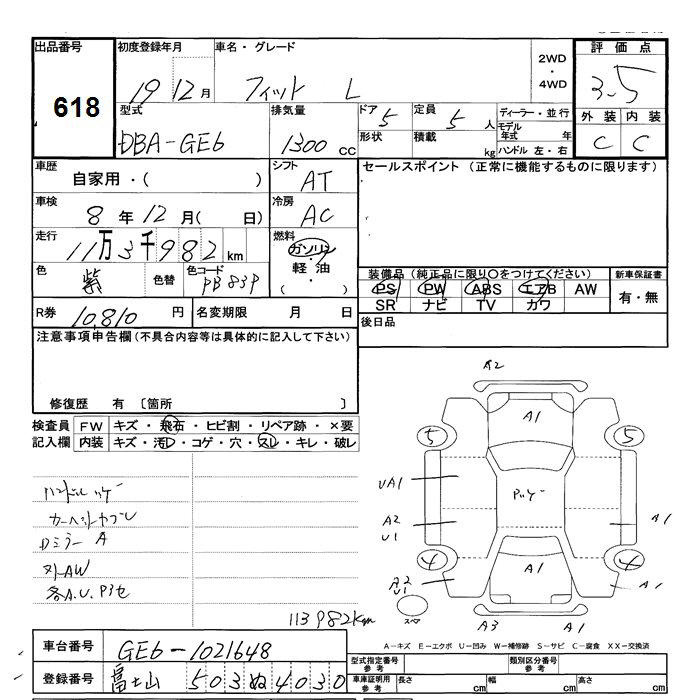 出品番号 初度登録年月 車名・グレード 評価点
618 19 12月 フィット L 2WD ・ 4WD 3.5
型式 排気量 ドア 5 定員 5人 ディーラー・並行 外装 内装
DBA-GE6 1300 CC 形状 積載 kg モデル年式 年 C C
ハンドル 左・右
車歴 シフト セールスポイント (正常に機能するものに限ります)
自家用・( ) AT
車検 冷房
8年12月( 日) AC
走行 燃料
11万3千982km ガソリン
軽油
( ・ )
色 色替 色コード 装備品 (純正品に限り○をつけてください) 新車保証書
紫 PB83P PS PW ABS エアB AW 有・無
SR ナビ TV カワ
R券 10,810円 名変期限 月 日 後日品
注意事項申告欄 (不具合内容等は具体的に記入して下さい)
修復歴 有 〔箇所 〕
検査員 FW キズ・飛石・ヒビ割・リペア跡・×要
記入欄 内装 キズ・汚レ・コゲ・穴・スレ・キレ・破レ
A2
A1
5 5
UA1 A2 U1 A1
4 4
A2 U1 A1 A1
スペア
A3 A1
Dミラー A
外AW
113982km
A-キズ E-エクボ U-凹み W-補修跡 S-サビ C-腐食 XX-交換済
車台番号 GE6-1021648 型式指定番号 参考 類別区分番号 参考
登録番号 富士山 503 ぬ 4030 車庫証明用 参考 長さ cm 幅 cm 高さ cm